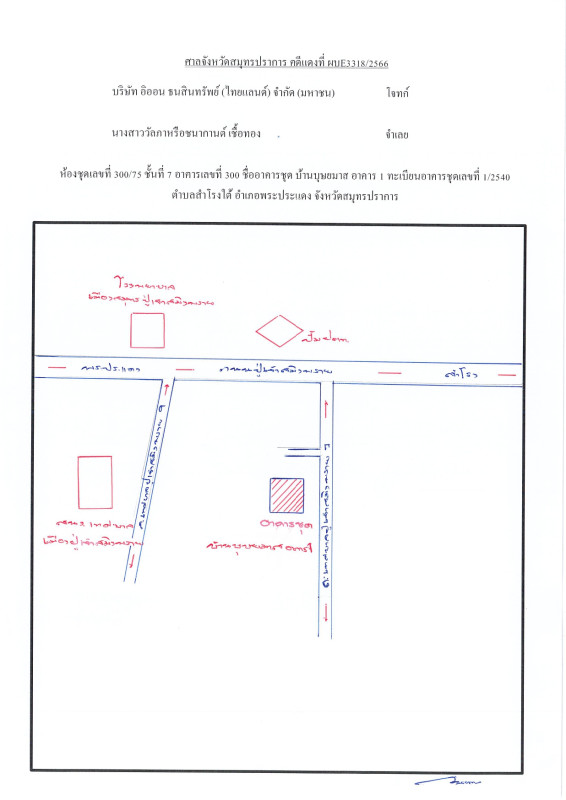 ศาลจังหวัดสมุทรปราการ คดีแดงที่ ผบE3318/2566
บริษัท อิออน ธนสินทรัพย์ (ไทยแลนด์) จำกัด (มหาชน) โจทก์
นางสาววัลภาหรือชนากานต์ เชื้อทอง จำเลย
ห้องชุดเลขที่ 300/75 ชั้นที่ 7 อาคารเลขที่ 300 ชื่ออาคารชุด บ้านบุษยมาส อาคาร 1 ทะเบียนอาคารชุดเลขที่ 1/2540
ตำบลสำโรงใต้ อำเภอพระประแดง จังหวัดสมุทรปราการ
โรงพยาบาล
เมืองสมุทรปู่เจ้าสมิงพราย
ปั๊มปตท
พระประแดง ถนนปู่เจ้าสมิงพราย สำโรง
เทศบาล
เมืองปู่เจ้าสมิงพราย
อาคารชุด
บ้านบุษยมาส อาคาร 1